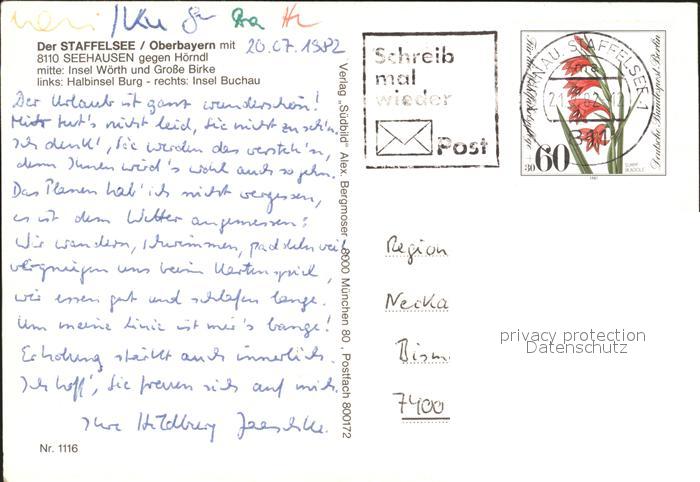 Der STAFFELSEE / Oberbayern mit 20.07.1982
8110 SEEHAUSEN gegen Hörndl
mitte: Insel Wörth und Große Birke
links: Halbinsel Burg - rechts: Insel Buchau
Der Urlaub ist ganz wunderschön!
Mir tut's nicht leid, Sie nicht zu seh'n.
Ich denk', Sie werden das versteh'n,
denn Ihnen wird's wohl auch so gehn.
Das Planen hab' ich nicht vergessen,
es ist dem Wetter angemessen:
Wir wandern, schwimmen, paddeln viel
vergnügen uns beim Kartenspiel,
wir essen gut und schlafen lange.
Um meine Linie ist mir's bange!
Erholung stärkt auch innerlich.
Ich hoff', Sie freuen sich auf mich.
Ihre Hildburg Jaeschke.
Nr. 1116
Verlag „Südbild" Alex. Bergmoser · 8000 München 80 · Postfach 800172
Schreib
mal
wieder
Post
60
Deutsche Bundespost Berlin
Region
Necka
Bism
7400
privacy protection
Datenschutz